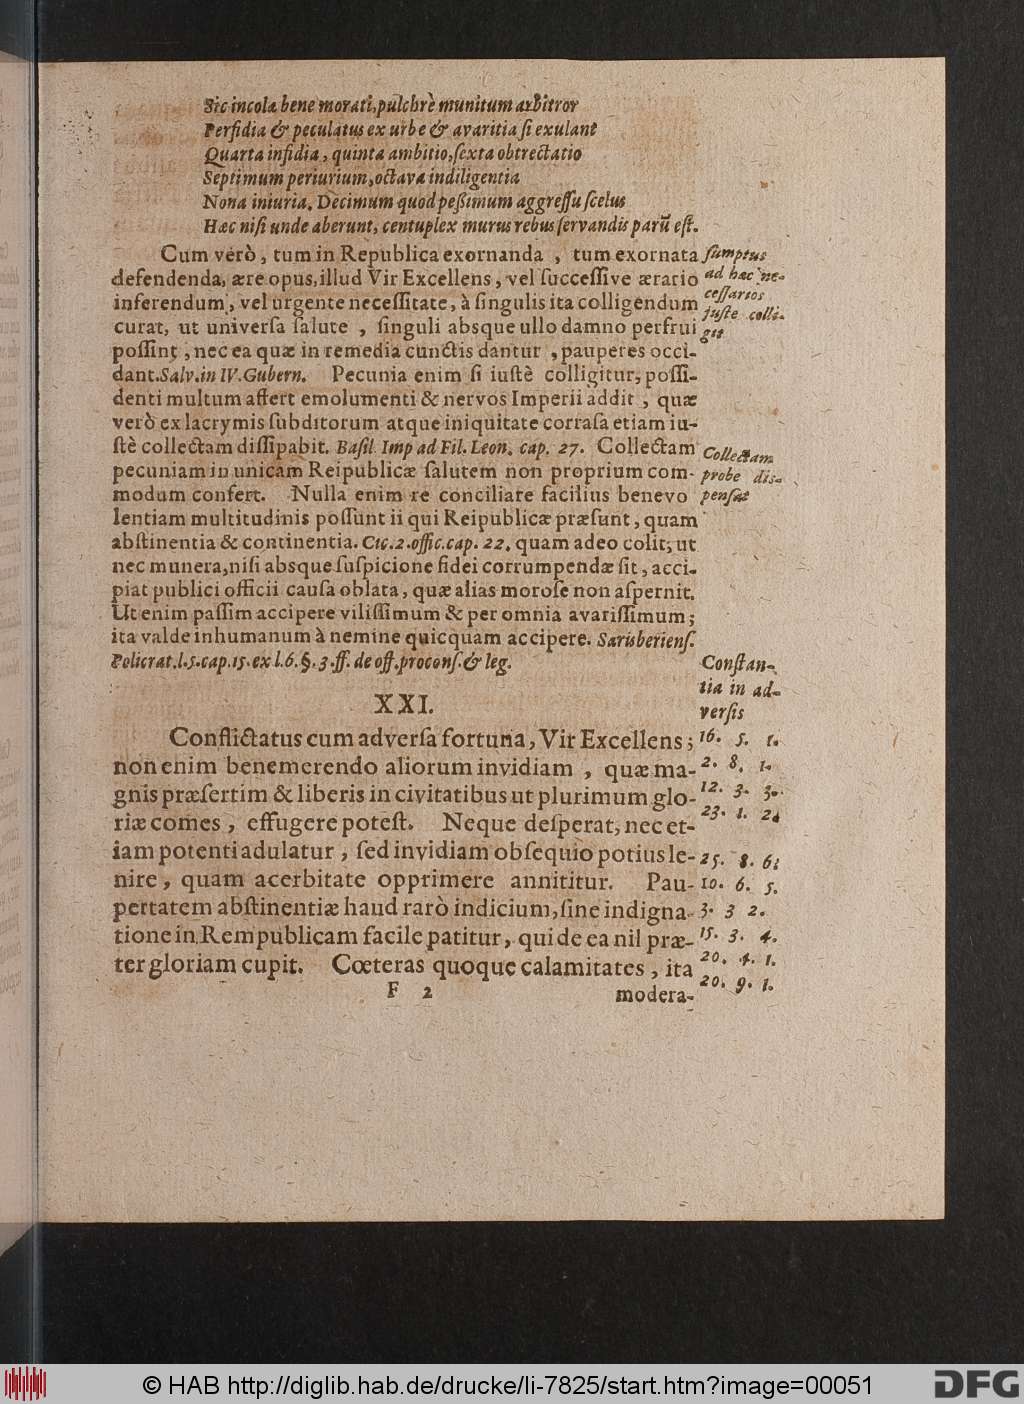 Sic incola bene morati, pulchrè munitum arbitror
Perfidia & peculatus ex urbe & avaritia si exulant
Quarta insidia, quinta ambitio, sexta obtrectatio
Septimum periurium, octava indiligentia
Nona iniuria, Decimum quod peßimum aggressu scelus
Hæc nisi unde aberunt, centuplex murus rebus servandis parū est.
Cum verò, tum in Republica exornanda, tum exornata
defendenda, ære opus, illud Vir Excellens, vel successive ærario
inferendum, vel urgente necessitate, à singulis ita colligendum
curat, ut universa salute, singuli absque ullo damno perfrui
possint, nec ea quæ in remedia cunctis dantur, pauperes occi-
dant. Salv. in IV. Gubern. Pecunia enim si iustè colligitur, possi-
denti multum affert emolumenti & nervos Imperii addit, quæ
verò ex lacrymis subditorum atque iniquitate corrasa etiam iu-
stè collectam dissipabit. Basil Imp ad Fil. Leon. cap. 27. Collectam
pecuniam in unicam Reipublicæ salutem non proprium com-
modum confert. Nulla enim re conciliare facilius benevo
lentiam multitudinis possunt ii qui Reipublicæ præsunt, quam
abstinentia & continentia. Cic. 2. offic. cap. 22. quam adeo colit, ut
nec munera, nisi absque suspicione fidei corrumpendæ sit, acci-
piat publici officii causa oblata, quæ alias morose non aspernit.
Ut enim passim accipere vilissimum & per omnia avarissimum;
ita valde inhumanum à nemine quicquam accipere. Sarisberiens.
Policrat. l. 5. cap. 15. ex l. 6. §. 3. ff. de off. procons. & leg.
sumptus
ad hac ne-
cessarios
juste colli-
git
Collectam
probe dis-
pensat
XXI.
Conflictatus cum adversa fortuna, Vir Excellens;
non enim benemerendo aliorum invidiam, quæ ma-
gnis præsertim & liberis in civitatibus ut plurimum glo-
riæ comes, effugere potest. Neque desperat, nec et-
iam potenti adulatur, sed invidiam obsequio potius le-
nire, quam acerbitate opprimere annititur. Pau-
pertatem abstinentiæ haud rarò indicium, sine indigna-
tione in Rempublicam facile patitur, qui de ea nil præ-
ter gloriam cupit. Cœteras quoque calamitates, ita
Constan-
tia in ad-
versis
16. 5. 1.
2. 8. 1.
12. 3. 3.
23. 1. 2.
25. 8. 6.
10. 6. 5.
3. 3 2.
15. 3. 4.
20. 4. 1.
20. 9. 1.
F 2
modera-
© HAB http://diglib.hab.de/drucke/li-7825/start.htm?image=00051
DFG